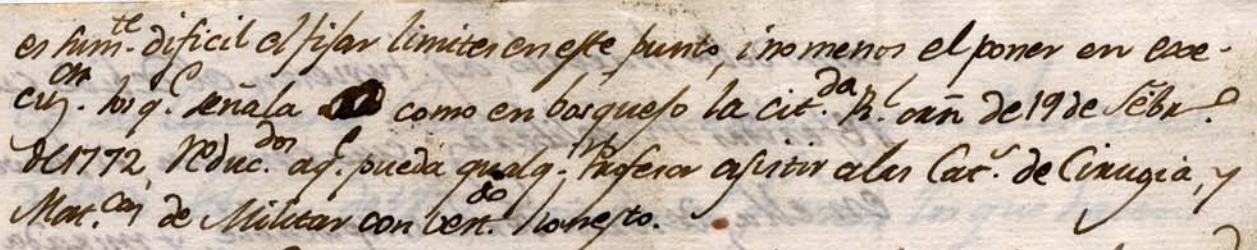 es sum.te dificil el fijar limites en este punto, i no menos el poner en exe-
cuz.on los q.e señala como en bosquejo la cit.da R.l orñ de 19 de Febr.o
de 1772, reduc.dos a q.e pueda qualq.r Profesor asistir a las Cat.s de Cirugia, y
Mat.cas de Militar con honesto.